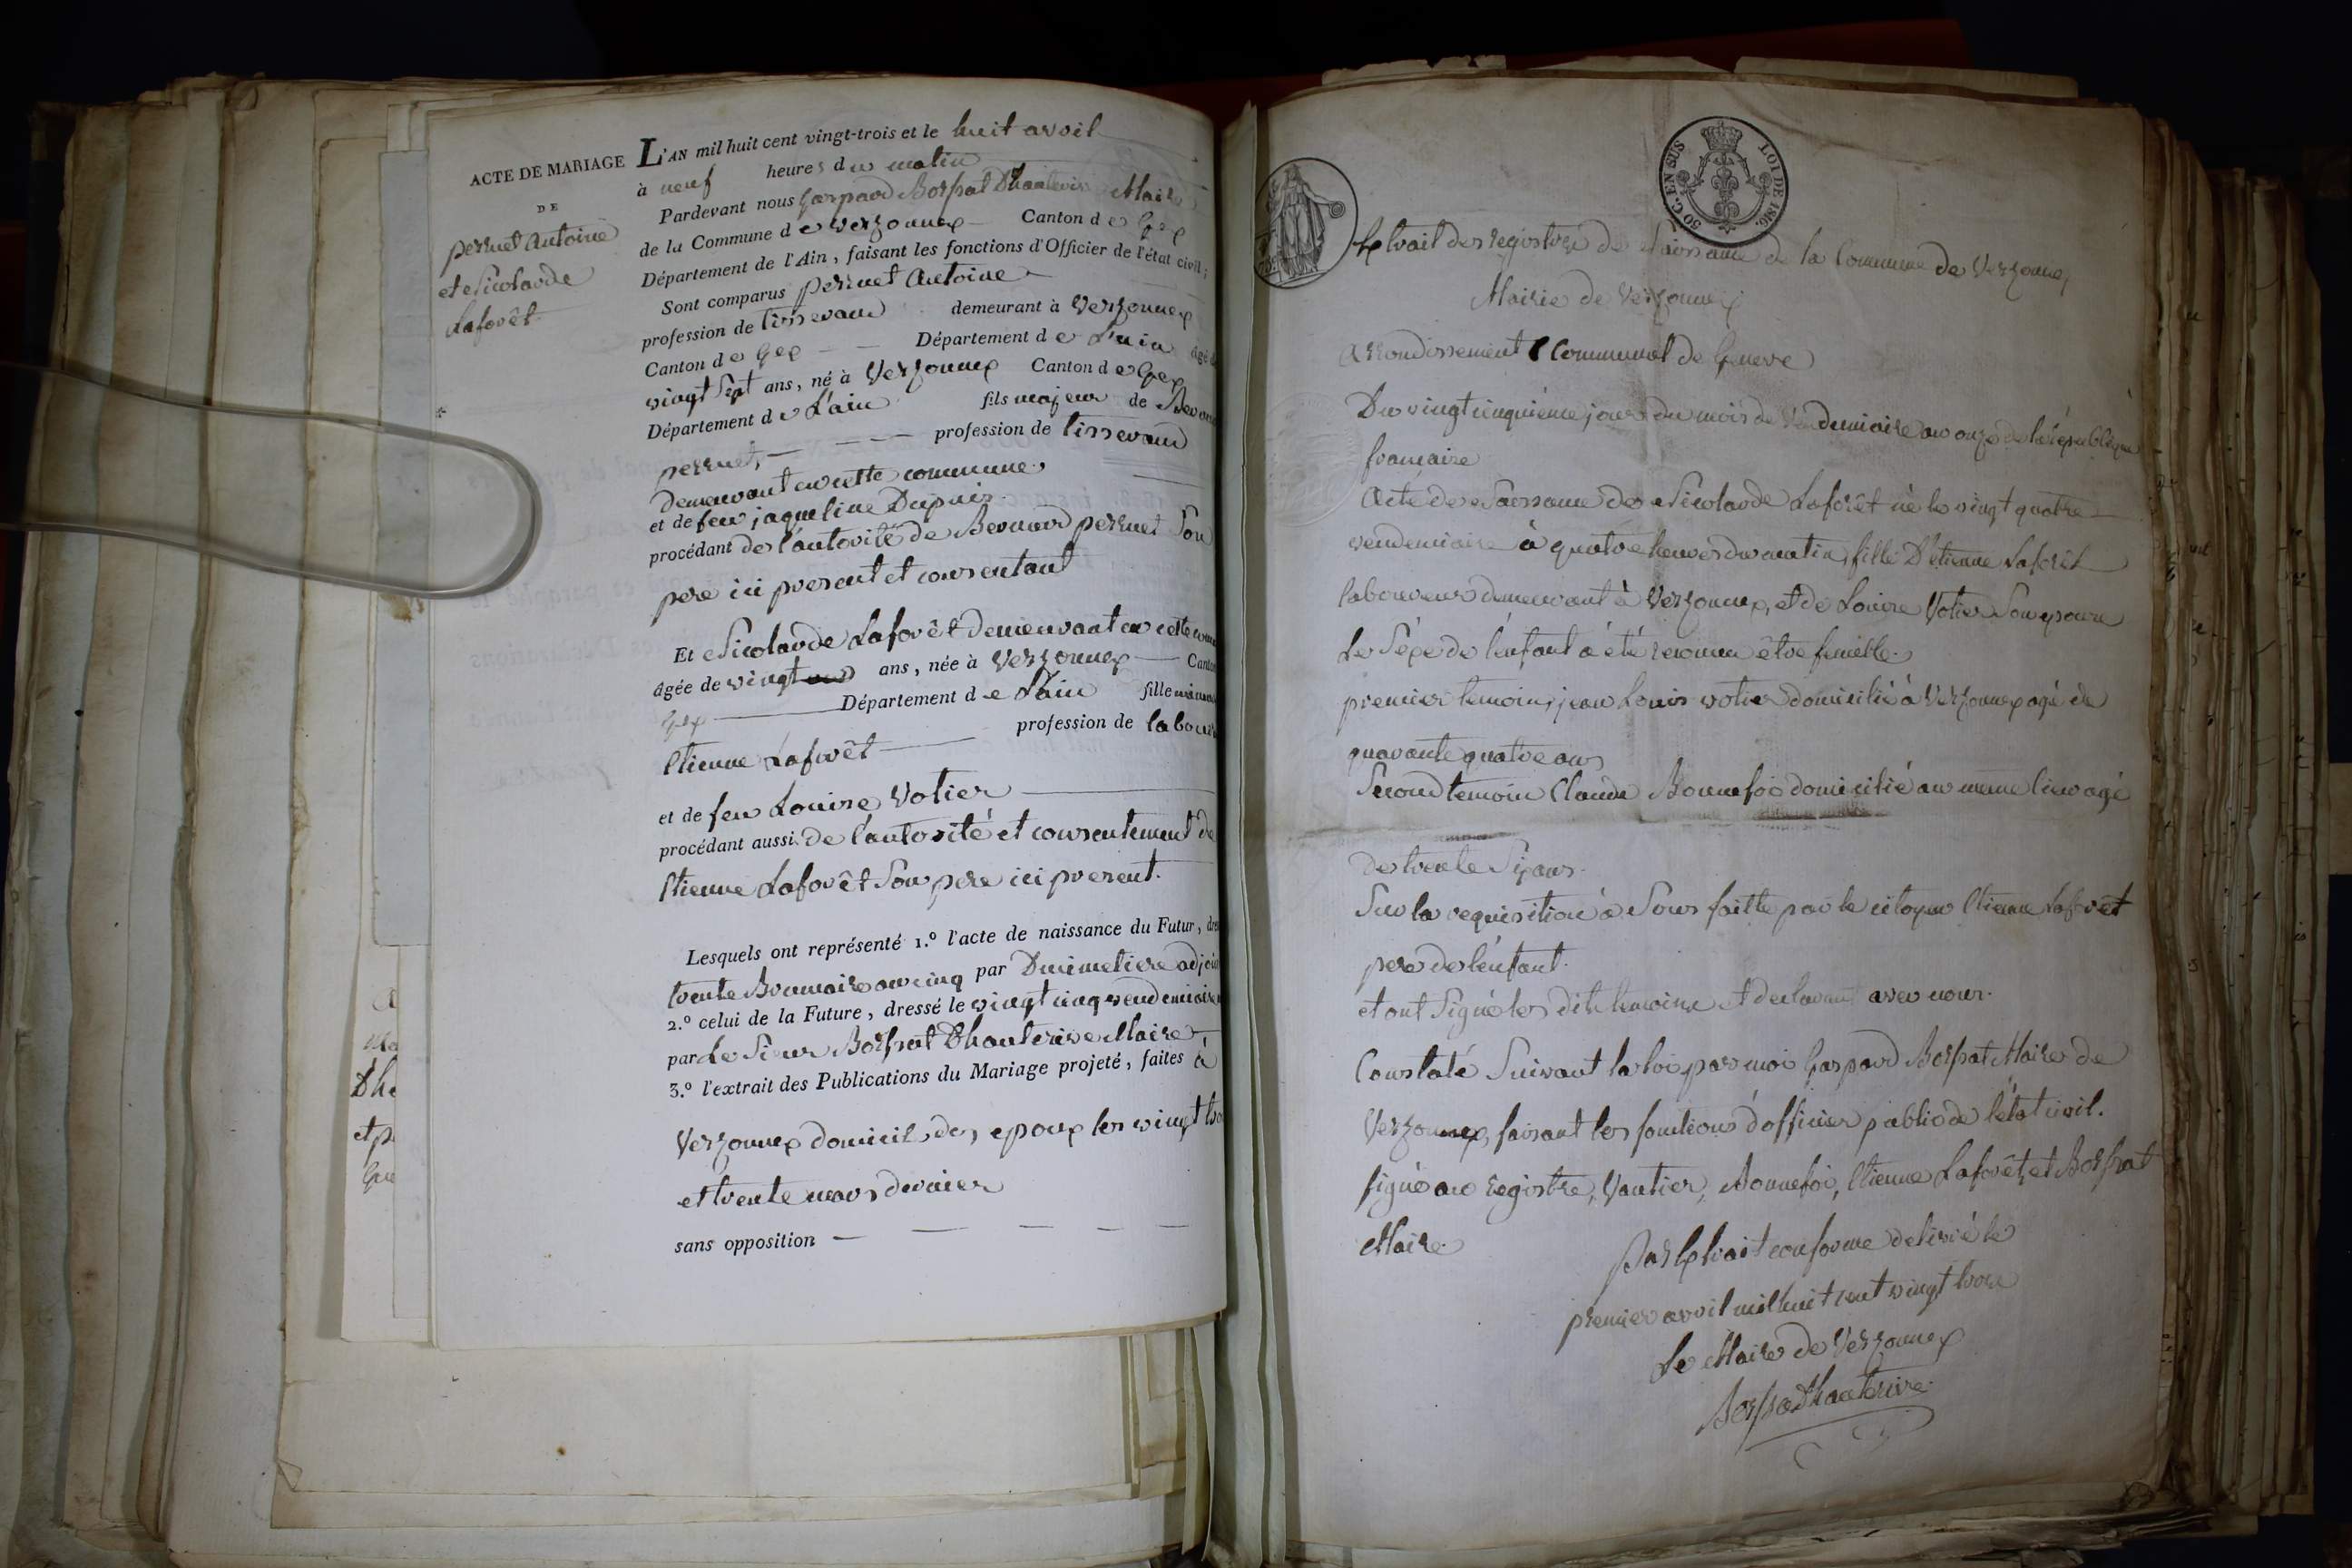 ACTE DE MARIAGE
DE
perruet Antoine
et Nicolarde
Laforêt
L'AN mil huit cent vingt-trois et le huit avril
à neuf heures du matin
Pardevant nous Gaspard Borssat Dhauterive Maire
de la Commune de Versonnex Canton de Gex
Département de l'Ain, faisant les fonctions d'Officier de l'état civil;
Sont comparus perruet Antoine
profession de tisserand demeurant à Versonnex
Canton de Gex Département de L'ain âgé de
vingt sept ans, né à Versonnex Canton de Gex
Département de L'ain fils majeur de
perruet profession de tisserand
demeurant en cette commune
et de feu jaqueline Dupuis
procédant de l'autorité de Bernard perruet Son
pere ici present et consentant
Et Nicolarde Laforêt demeurant en cette
âgée de vingt ans, née à Versonnex
Gex Département de L'ain fille
Etienne Laforêt profession de
et de feu Louise Votier
procédant aussi de l'autorité et consentement de
Etienne Laforêt Son pere ici present.
Lesquels ont représenté 1.º l'acte de naissance du Futur,
trente Brumaire an cinq par Ducimetiere
2.º celui de la Future, dressé le vingt cinq vendemiaire
par Le Sieur Borssat Dhauterive Maire
3.º l'extrait des Publications du Mariage projeté, faites à
Versonnex domicile des epoux les vingt
et trente mars dernier
sans opposition
50 C. EN SUS
LOI DE 1816.
Extrait des registres de Naissance de la Commune de Versonnex
Mairie de Versonnex
Arrondissement Communal de Geneve
Du vingt cinquiéme jour du mois de Vendemiaire an onze de la république
francaise
Acte de Naissance de Nicolarde Laforêt né le vingt quatre
vendemiaire à quatre heures du matin, fille D'etienne Laforêt
laboureur demeurant à Versonnex, et de Louise Votier Son epouse
Le Sexe de l'enfant a été reconnu être femelle.
premier temoin, jean Louis votier domicilié à Versonnex agé de
quarante quatre ans
Second temoin Claude Bonnefoi domicilié au meme lieu agé
de trente Six ans.
Sur la requisition à Nous faitte par le citoyen Etienne Laforêt
pere de l'enfant.
et ont Signé les dits temoins et declarant avec nous.
Constaté Suivant la loi par moi Gaspard Borssat Maire de
Versonnex, faisant les fonctions d'officier public de l'état civil.
Signé au registre, Vautier, Bonnefoi, Etienne Laforêt, et Borssat
Maire.
Par Extrait conforme delivré le
premier avril mil huit cent vingt trois
Le Maire de Versonnex
Borssat Dhauterive